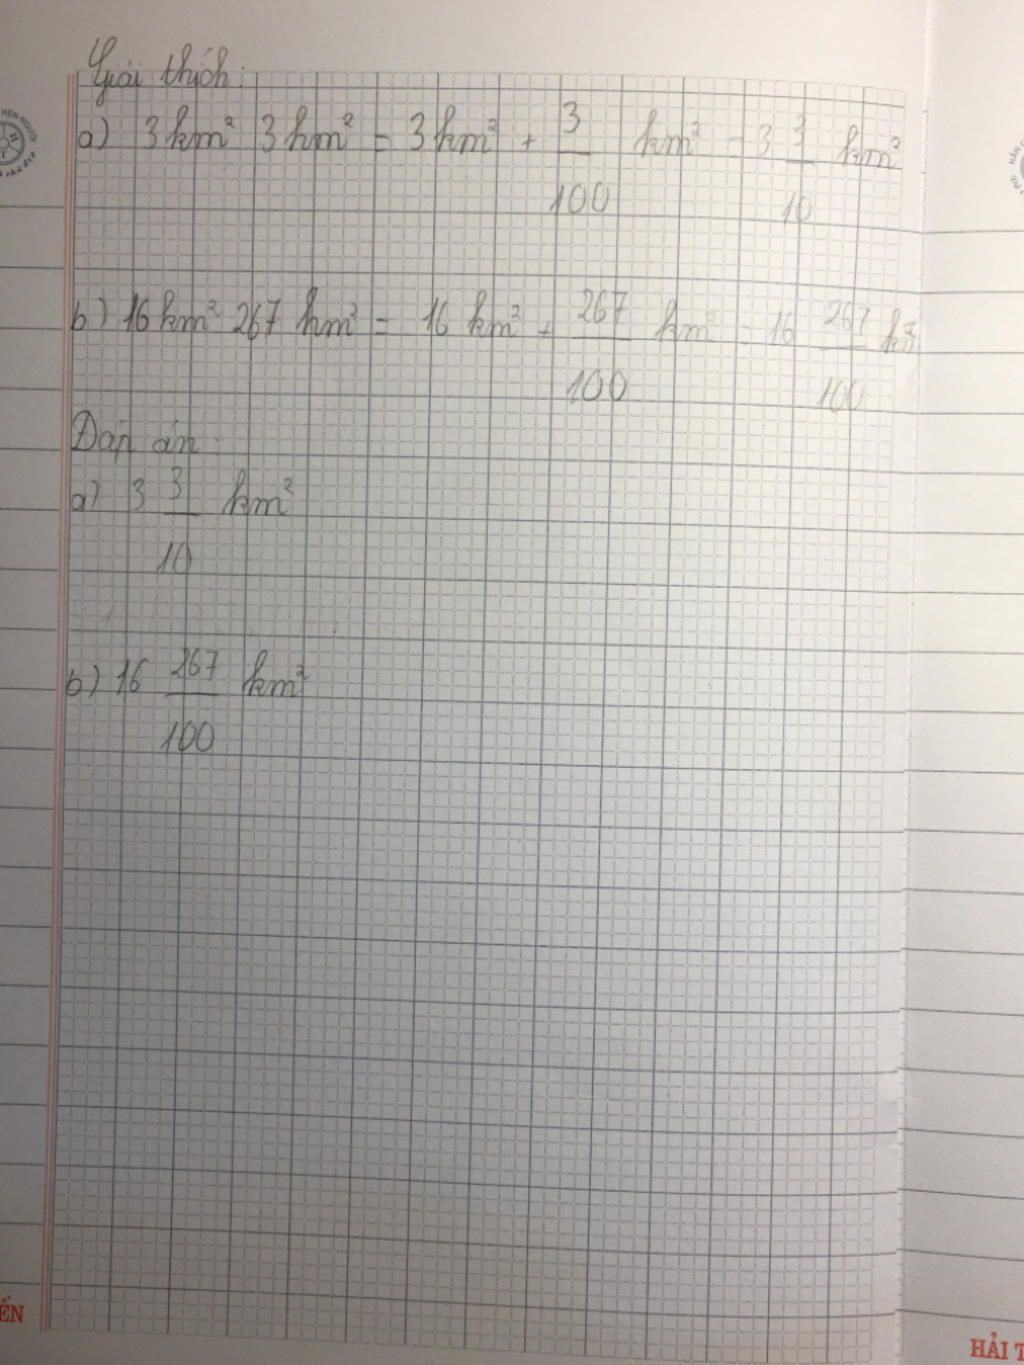 Giải thích:
a) 3km² 3hm² = 3km² + 3/100 km² = 3 3/10 km²
b) 16km² 267 hm² = 16 km² + 267/100 km² = 16 267/100 km²
Đáp án:
a) 3 3/10 km²
b) 16 267/100 km²
ẾN
HẢI T